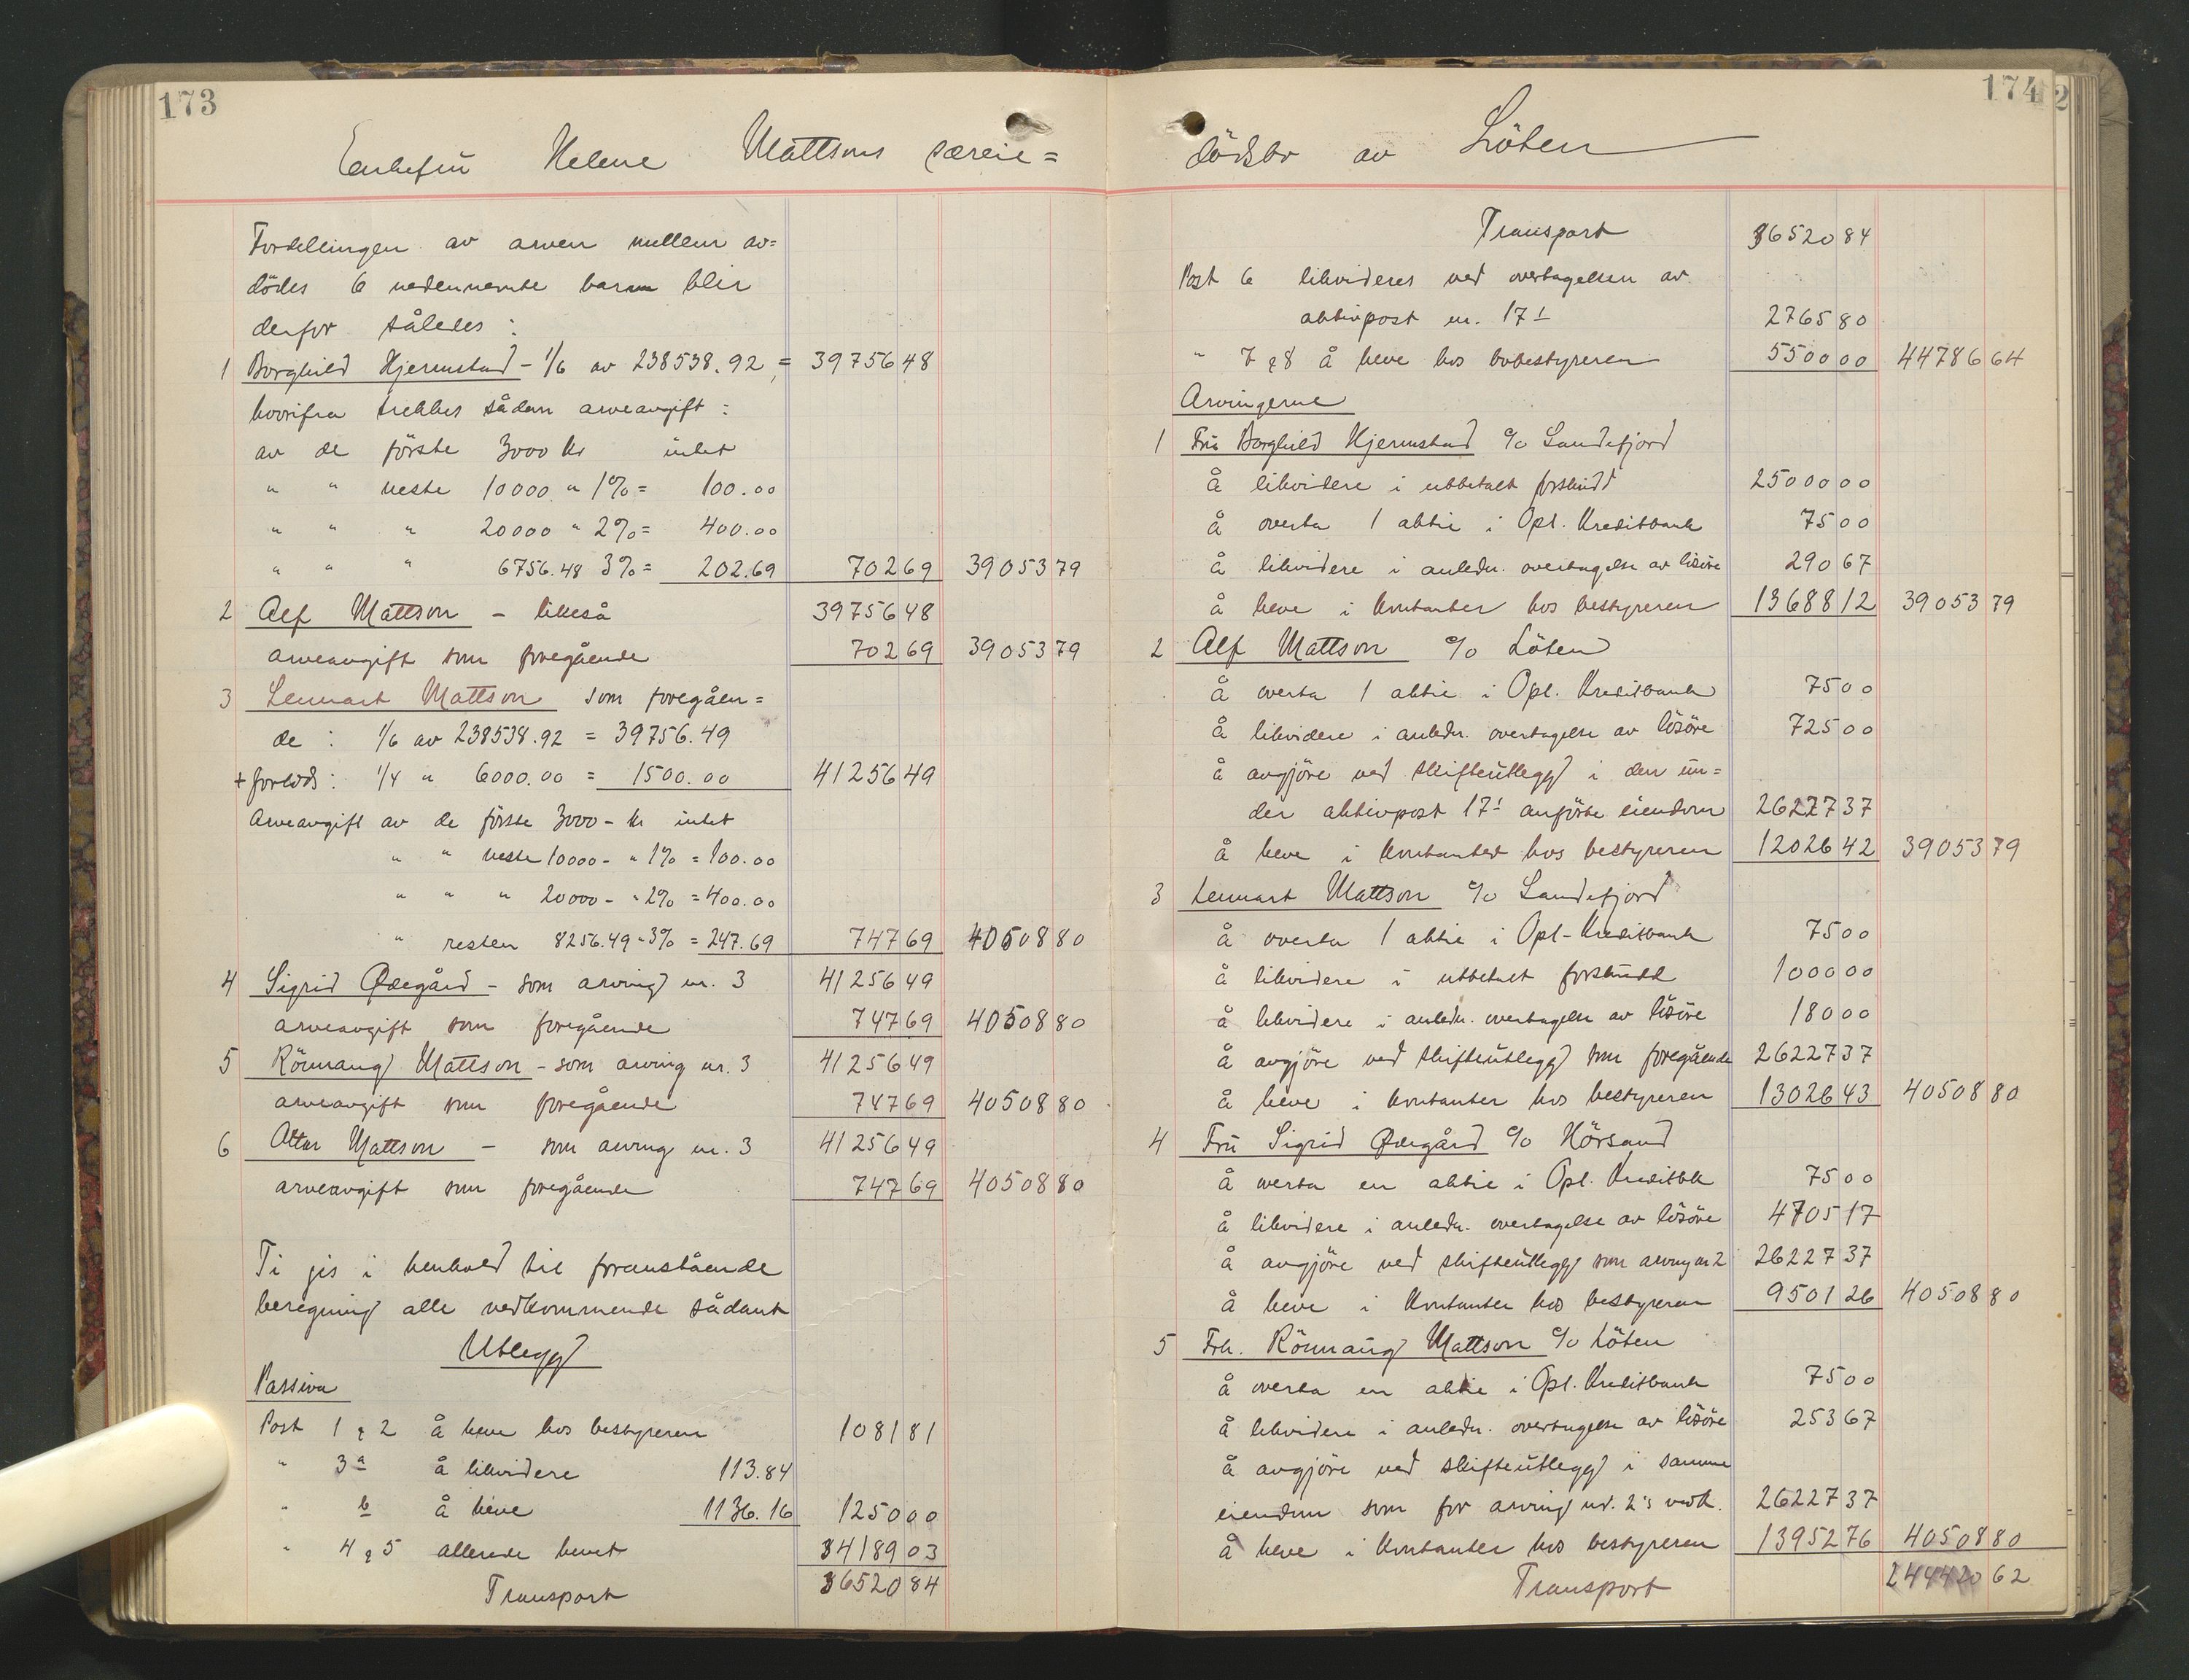 173
Enkefru Helene Mattsons særeie=
Fordelingen av arven mellem av=
dødes 6 nedennevnte barn blir
derfor således:
1 Borghild Hjermstad - 1/6 av 238538.92, = 39756 48
hvorifra trekkes sådan arveavgift:
av de første 3000 kr intet
" " neste 10000 " 1% = 100.00
" " " 20000 " 2% = 400.00
" " " 6756.48 3% = 202.69 702 69 39053 79
2 Alf Mattson - likeså 39756 48
arveavgift som foregående 702 69 39053 79
3 Lennart Mattson som foregåen=
de: 1/6 av 238538.92 = 39756.49
+ forlods: 1/4 " 6000.00 = 1500.00 41256 49
Arveavgift av de første 3000 - kr intet
" " neste 10000 - " 1% = 100.00
" " " 20000 - " 2% = 400.00
" resten 8256.49 " 3% = 247.69 747 69 40508 80
4 Sigrid Ødegård - som arving nr. 3 41256 49
arveavgift som foregående 747 69 40508 80
5 Rönnaug Mattson - som arving nr. 3 41256 49
arveavgift som foregående 747 69 40508 80
6 Ottar Mattson - som arving nr. 3 41256 49
arveavgift som foregående 747 69 40508 80
Ti gis i henhold til foranstående
beregning alle vedkommende sådant
Utlegg
Passiva
Post 1 & 2 å heve hos bestyreren 1081 81
" 3 a å likvidere 113.84
" b å heve 1136.16 1250 00
" 4 & 5 allerede hevet 34189 03
Transport 36520 84
174
2
dödsbo av Löten
Transport 36520 84
Post 6 likvideres ved overtagelsen av
aktivpost nr. 17 1 2765 80
" 7 & 8 å heve hos bobestyreren 5500 00 44786 64
Arvingerne
1 Fru Borghild Hjermstad % Sandefjord
å likvidere i utbetalt forskudd 25000 00
å overta 1 aktie i Opl. Kreditbank 75 00
å likvidere i anledn. overtagelse av lösöre 290 67
å heve i kontanter hos bestyreren 13688 12 39053 79
2 Alf Mattson % Löten
å overta 1 aktie i Opl. Kreditbank 75 00
å likvidere i anledn. overtagelse av lösöre 725 00
å avgjöre ved skifteutlegg i den un=
der aktivpost 17 1 anförte eiendom 26227 37
å heve i kontanter hos bestyreren 12026 42 39053 79
3 Lennart Mattson % Sandefjord
å overta 1 aktie i Opl- Kreditbank 75 00
å likvidere i utbetalt forskudd 1000 00
å likvidere i anledn. overtagelse av lösöre 180 00
å avgjöre ved skifteutlegg som foregående 26227 37
å heve i kontanter hos bestyreren 13026 43 40508 80
4 Fru Sigrid Ødegård % Hörsand
å overta en aktie i Opl. Kreditbk 75 00
å likvidere i anledn. overtagelse av lösöre 4705 17
å avgjöre ved skifteutlegg som arving nr 2 26227 37
å heve i kontanter hos bestyreren 9501 26 40508 80
5 Frk. Rönnaug Mattson % Löten
å overta en aktie i Opl. Kreditbank 75 00
å likvidere i anledn. overtagelse av lösöre 253 67
å avgjöre ved skifteutlegg i samme
eiendom som for arving nr. 2's vedk. 26227 37
å heve i kontanter hos bestyreren 13952 76 40508 80
Transport 244420 62